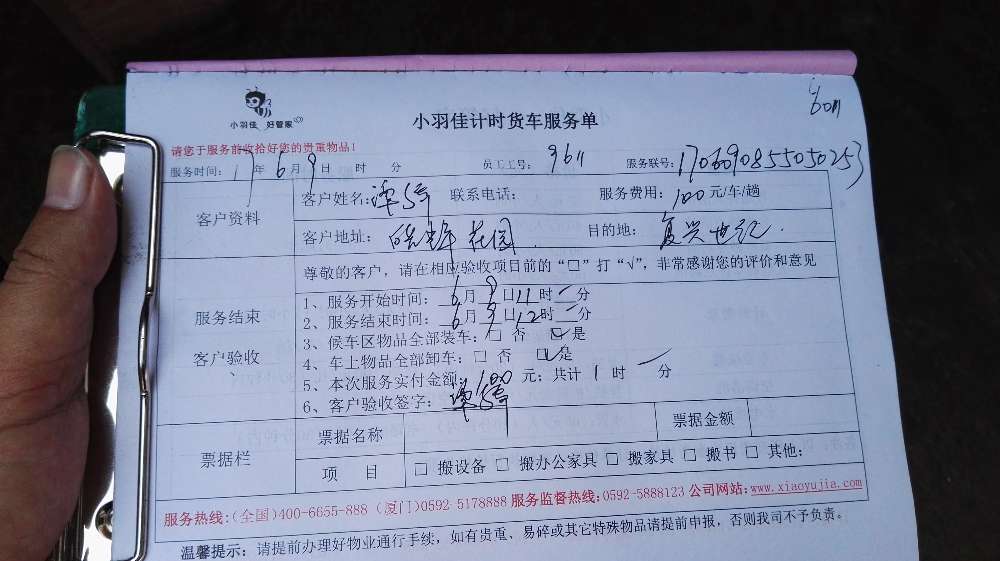 小羽佳 好管家
6011
小羽佳计时货车服务单
请您于服务前收拾好您的贵重物品!
服务时间: 17年6月9日 时 分 员工工号: 9611 服务联号: 1706090855050253
客户资料
客户姓名: 谭 联系电话: 服务费用: 100元/车/趟
客户地址: 花园 目的地: 复兴世纪
服务结束
客户验收
尊敬的客户,请在相应验收项目前的“□”打“√”,非常感谢您的评价和意见
1、服务开始时间: 6月9日11时 分
2、服务结束时间: 6月9日12时 分
3、候车区物品全部装车: □ 否 ☑是
4、车上物品全部卸车: □ 否 ☑是
5、本次服务实付金额: 100 元; 共计 1 时 分
6、客户验收签字: 谭
票据栏
票据名称 票据金额
项 目 □ 搬设备 □ 搬办公家具 □ 搬家具 □ 搬书 □ 其他:
服务热线:(全国)400-6655-888 (厦门)0592-5178888 服务监督热线:0592-5888123 公司网站:www.xiaoyujia.com
温馨提示: 请提前办理好物业通行手续,如有贵重、易碎或其它特殊物品请提前申报,否则我司不予负责。